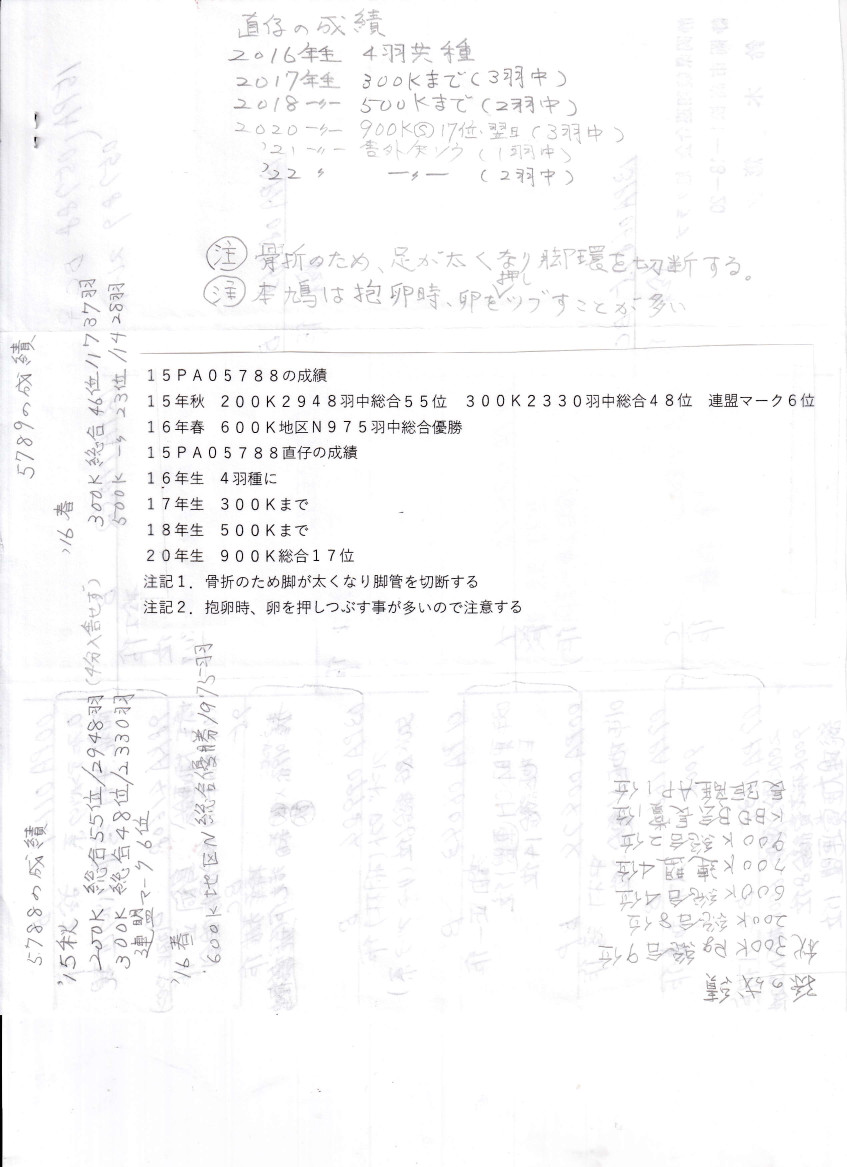 直仔の成績
2016年生 4羽共種
2017年生 300Kまで(3羽中)
2018〃 500Kまで(2羽中)
2020〃 900KⓈ17位・翌日(3羽中)
'21〃 舎外失ソウ(1羽中)
'22 〃 〃 (2羽中)
注 骨折のため、足が太くなり脚環を切断する。
注 本鳩は抱卵時、卵を押しツブすことが多い
15PA05788の成績
15年秋 200K2948羽中総合55位 300K2330羽中総合48位 連盟マーク6位
16年春 600K地区N975羽中総合優勝
15PA05788直仔の成績
16年生 4羽種に
17年生 300Kまで
18年生 500Kまで
20年生 900K総合17位
注記1．骨折のため脚が太くなり脚管を切断する
注記2．抱卵時、卵を押しつぶす事が多いので注意する
5789の成績
'16春
300K 総合46位/1737羽
500K 〃 23位/1428羽
5788の成績
'15秋
200K 総合55位/2948羽(4分入舎せず)
300K 総合48位/2330羽
連盟マーク6位
'16春
600K地区N総合優勝/975羽
孫の成績
秋300K Rg 総合9位
200K総合8位
600K総合4位
700K連盟4位
900K総合2位
KBDB会長賞1位
長距離AP1位